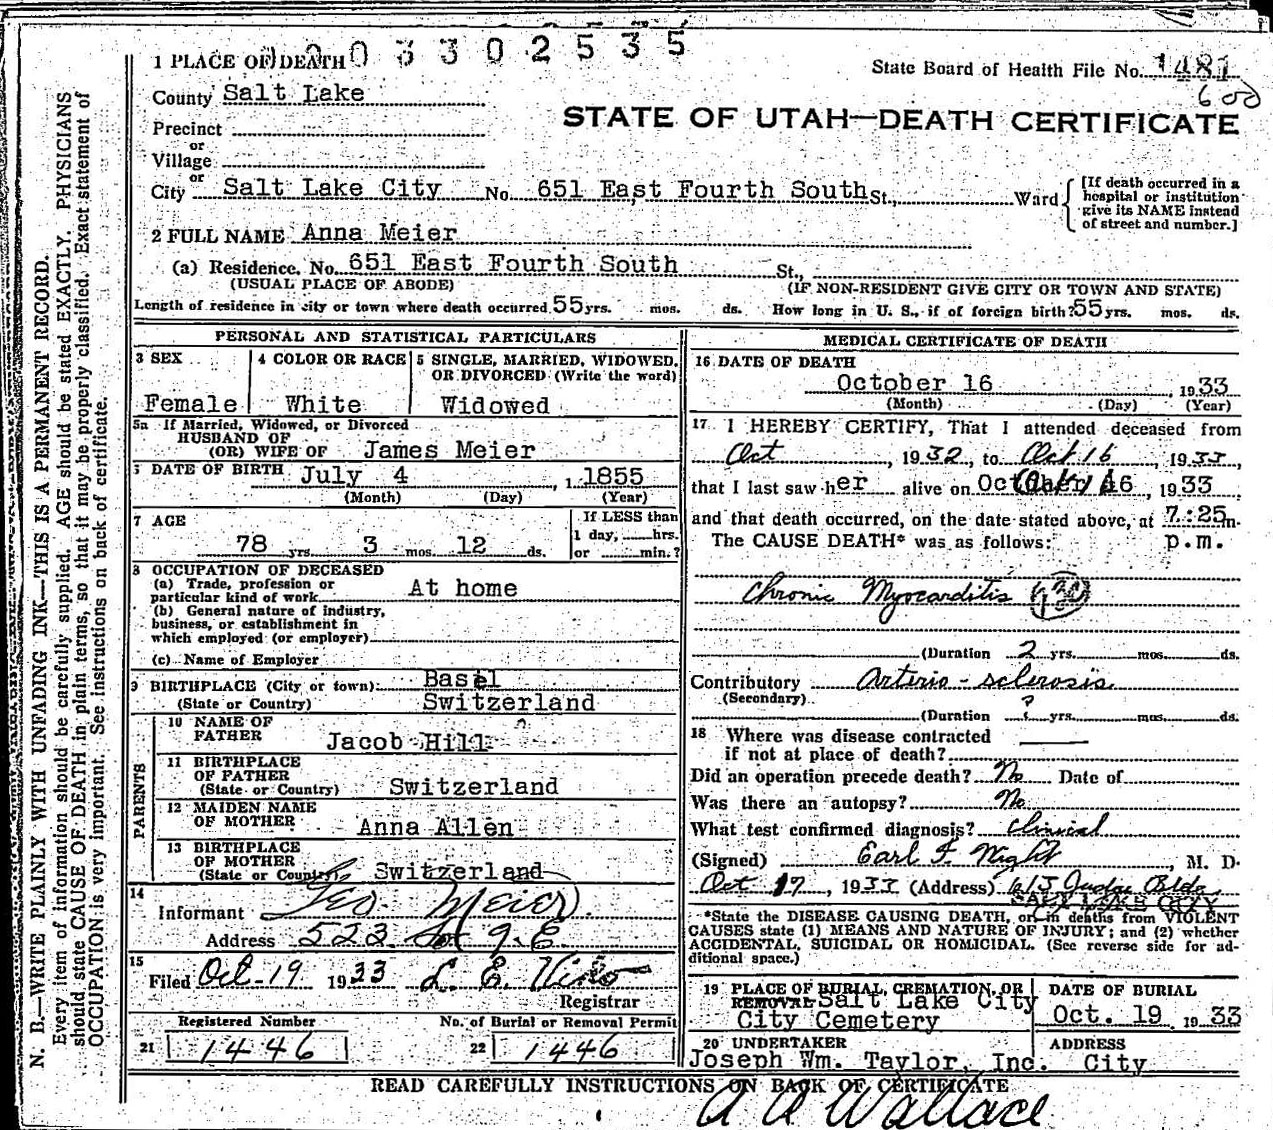 0 3 3 0 2 5 3 5
1 PLACE OF DEATH
State Board of Health File No. 1481
County Salt Lake
STATE OF UTAH—DEATH CERTIFICATE
Precinct
or
Village
or
City Salt Lake City No. 651 East Fourth South St., Ward
[If death occurred in a
hospital or institution
give its NAME instead
of street and number.]
2 FULL NAME Anna Meier
(a) Residence. No. 651 East Fourth South St.,
(USUAL PLACE OF ABODE) (IF NON-RESIDENT GIVE CITY OR TOWN AND STATE)
Length of residence in city or town where death occurred 55 yrs. mos. ds. How long in U. S., if of foreign birth? 55 yrs. mos. ds.
PERSONAL AND STATISTICAL PARTICULARS
3 SEX
Female
4 COLOR OR RACE
White
5 SINGLE, MARRIED, WIDOWED,
OR DIVORCED (Write the word)
Widowed
5a If Married, Widowed, or Divorced
HUSBAND OF
(OR) WIFE OF James Meier
DATE OF BIRTH July 4, 1855
(Month) (Day) (Year)
7 AGE
78 yrs. 3 mos. 12 ds.
If LESS than
1 day, hrs.
or min.?
8 OCCUPATION OF DECEASED
(a) Trade, profession or
particular kind of work At home
(b) General nature of industry,
business, or establishment in
which employed (or employer)
(c) Name of Employer
9 BIRTHPLACE (City or town) Basel
(State or Country) Switzerland
PARENTS
10 NAME OF
FATHER Jacob Hill
11 BIRTHPLACE
OF FATHER
(State or Country) Switzerland
12 MAIDEN NAME
OF MOTHER Anna Allen
13 BIRTHPLACE
OF MOTHER
(State or Country) Switzerland
14
Informant Geo. Meier
Address 523 So 9 E.
15
Filed Oct-19 1933 L. E. Viko
Registrar
Registered Number
21 1446
No. of Burial or Removal Permit
22 1446
MEDICAL CERTIFICATE OF DEATH
16 DATE OF DEATH
October 16, 1933
(Month) (Day) (Year)
17 I HEREBY CERTIFY, That I attended deceased from
Oct, 1932, to Oct 16, 1933,
that I last saw her alive on October 16, 1933
and that death occurred, on the date stated above, at 7:25 m.
The CAUSE DEATH* was as follows: p.m.
Chronic Myocarditis 930
(Duration 2 yrs. mos. ds.
Contributory Arterio-sclerosis
(Secondary)
(Duration ? yrs. mos. ds.
18 Where was disease contracted
if not at place of death?
Did an operation precede death? No Date of
Was there an autopsy? No
What test confirmed diagnosis? clinical
(Signed) Earl F. Wight, M. D.
Oct 17, 1933 (Address) 613 Judge Bldg
SALT LAKE CITY
*State the DISEASE CAUSING DEATH, or in deaths from VIOLENT
CAUSES state (1) MEANS AND NATURE OF INJURY; and (2) whether
ACCIDENTAL, SUICIDAL OR HOMICIDAL. (See reverse side for ad-
ditional space.)
19 PLACE OF BURIAL, CREMATION, OR
REMOVAL Salt Lake City
City Cemetery
DATE OF BURIAL
Oct. 19 1933
20 UNDERTAKER
Joseph Wm. Taylor, Inc.
ADDRESS
City
READ CAREFULLY INSTRUCTIONS ON BACK OF CERTIFICATE
A A Wallace
N. B.—WRITE PLAINLY WITH UNFADING INK—THIS IS A PERMANENT RECORD.
Every item of information should be carefully supplied. AGE should be stated EXACTLY. PHYSICIANS
should state CAUSE OF DEATH in plain terms, so that it may be properly classified. Exact statement of
OCCUPATION is very important. See instructions on back of certificate.